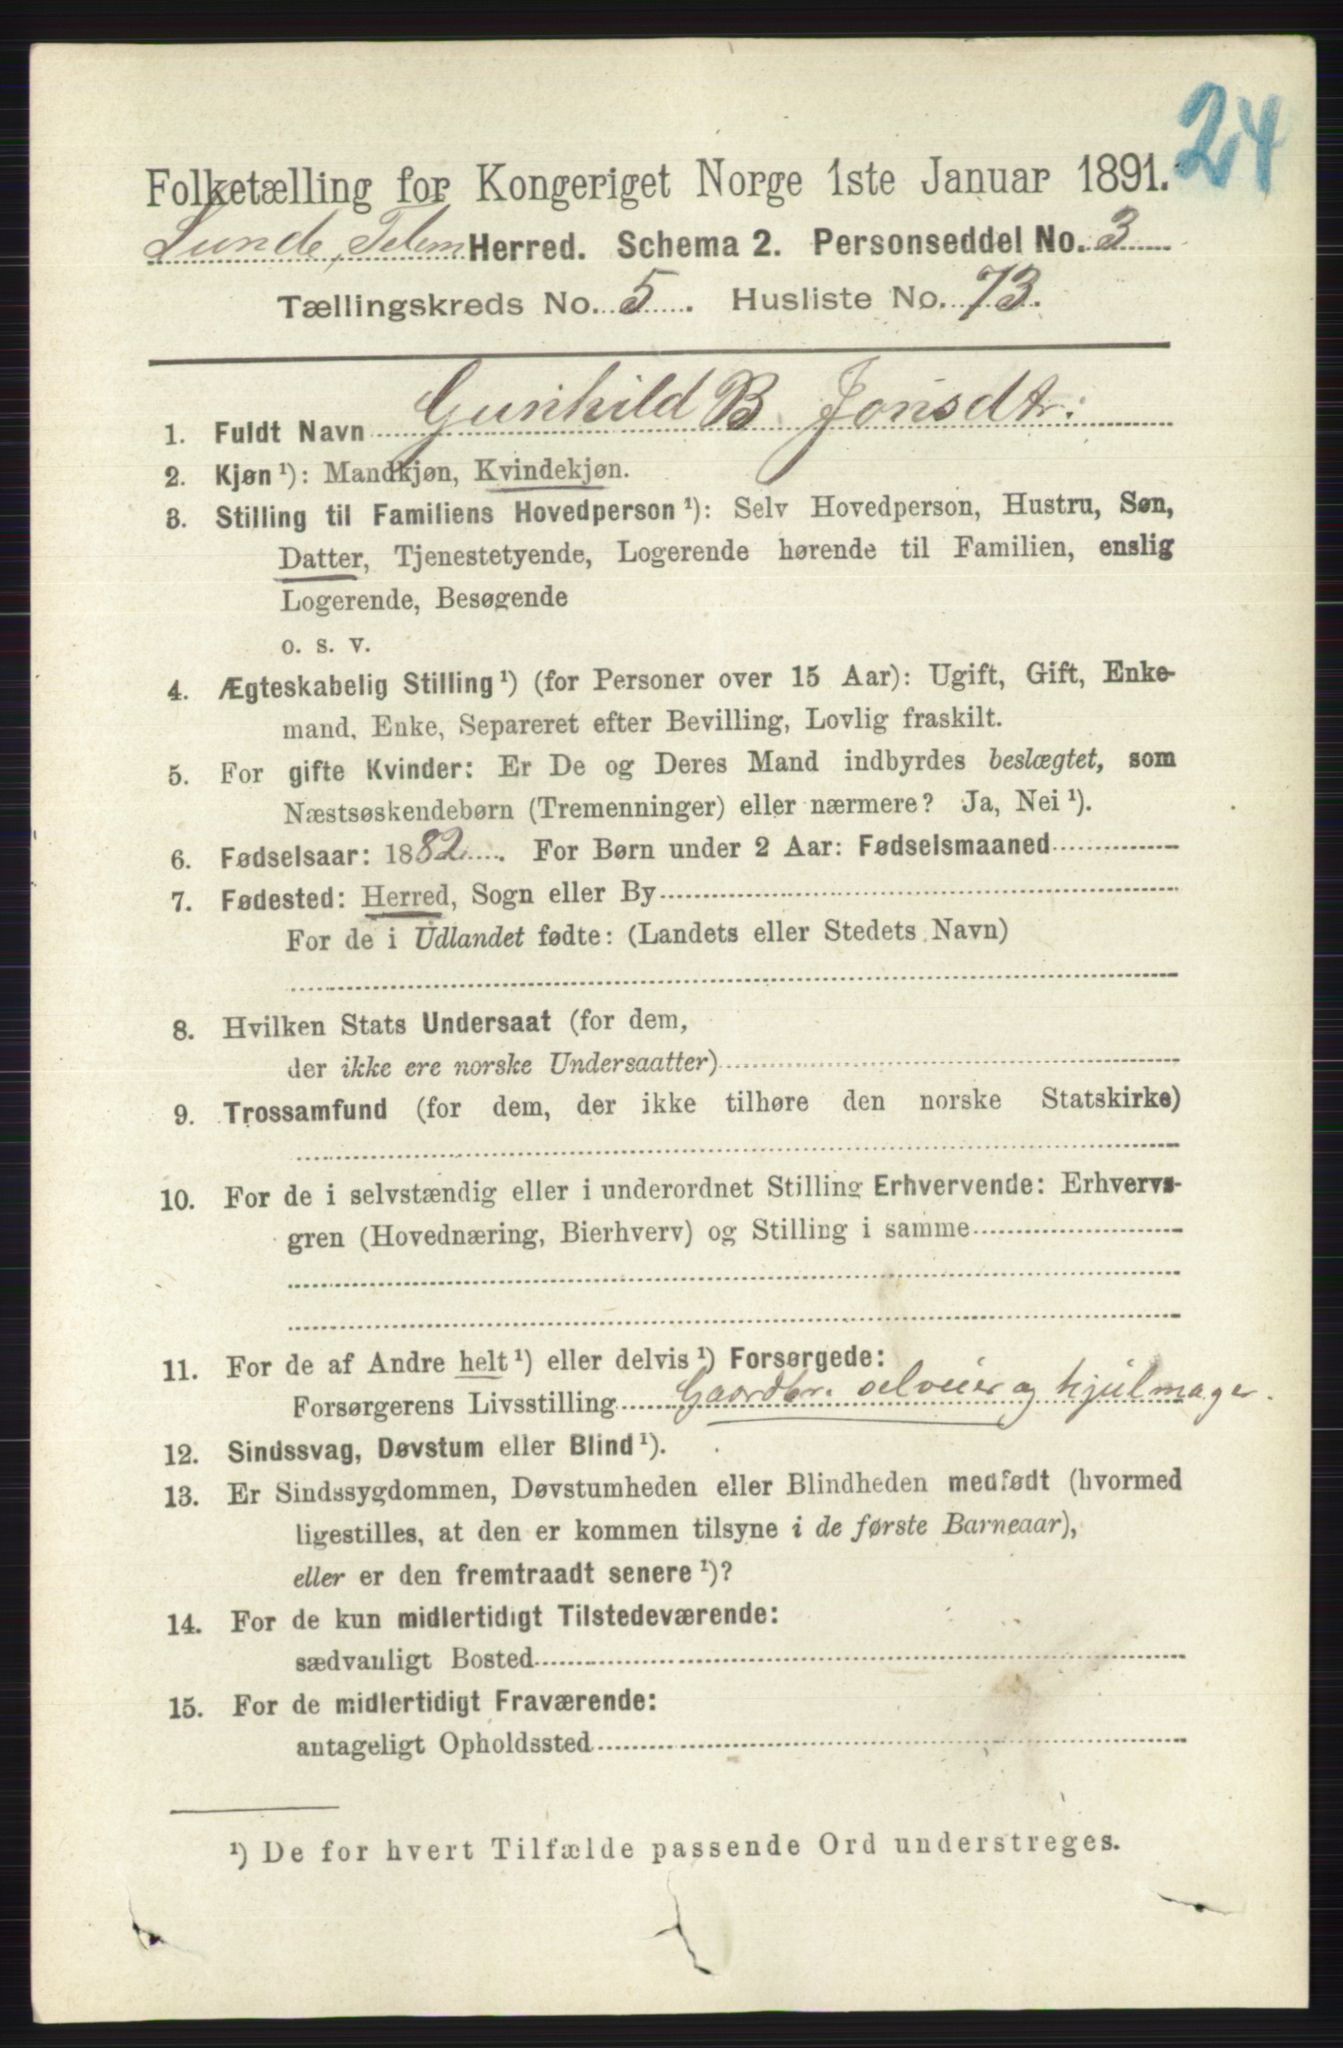 24
Folketælling for Kongeriget Norge 1ste Januar 1891.
Lunde, Telem Herred. Schema 2. Personseddel No. 3
Tællingskreds No. 5. Husliste No. 73.
1. Fuldt Navn Gunhild B. Jonsdtr:
2. Kjøn¹): Mandkjøn, Kvindekjøn.
3. Stilling til Familiens Hovedperson¹): Selv Hovedperson, Hustru, Søn,
Datter, Tjenestetyende, Logerende hørende til Familien, enslig
Logerende, Besøgende
o. s. v.
4. Ægteskabelig Stilling¹) (for Personer over 15 Aar): Ugift, Gift, Enke-
mand, Enke, Separeret efter Bevilling, Lovlig fraskilt.
5. For gifte Kvinder: Er De og Deres Mand indbyrdes beslægtet, som
Næstsøskendebørn (Tremenninger) eller nærmere? Ja, Nei¹).
6. Fødselsaar: 1882. For Børn under 2 Aar: Fødselsmaaned
7. Fødested: Herred, Sogn eller By
For de i Udlandet fødte: (Landets eller Stedets Navn)
8. Hvilken Stats Undersaat (for dem,
der ikke ere norske Undersaatter)
9. Trossamfund (for dem, der ikke tilhøre den norske Statskirke)
10. For de i selvstændig eller i underordnet Stilling Erhvervende: Erhvervs-
gren (Hovednæring, Bierhverv) og Stilling i samme
11. For de af Andre helt¹) eller delvis¹) Forsørgede:
Forsørgerens Livsstilling Gaardbr. selveier og hjulmager.
12. Sindssvag, Døvstum eller Blind¹).
13. Er Sindssygdommen, Døvstumheden eller Blindheden medfødt (hvormed
ligestilles, at den er kommen tilsyne i de første Barneaar),
eller er den fremtraadt senere¹)?
14. For de kun midlertidigt Tilstedeværende:
sædvanligt Bosted
15. For de midlertidigt Fraværende:
antageligt Opholdssted
¹) De for hvert Tilfælde passende Ord understreges.